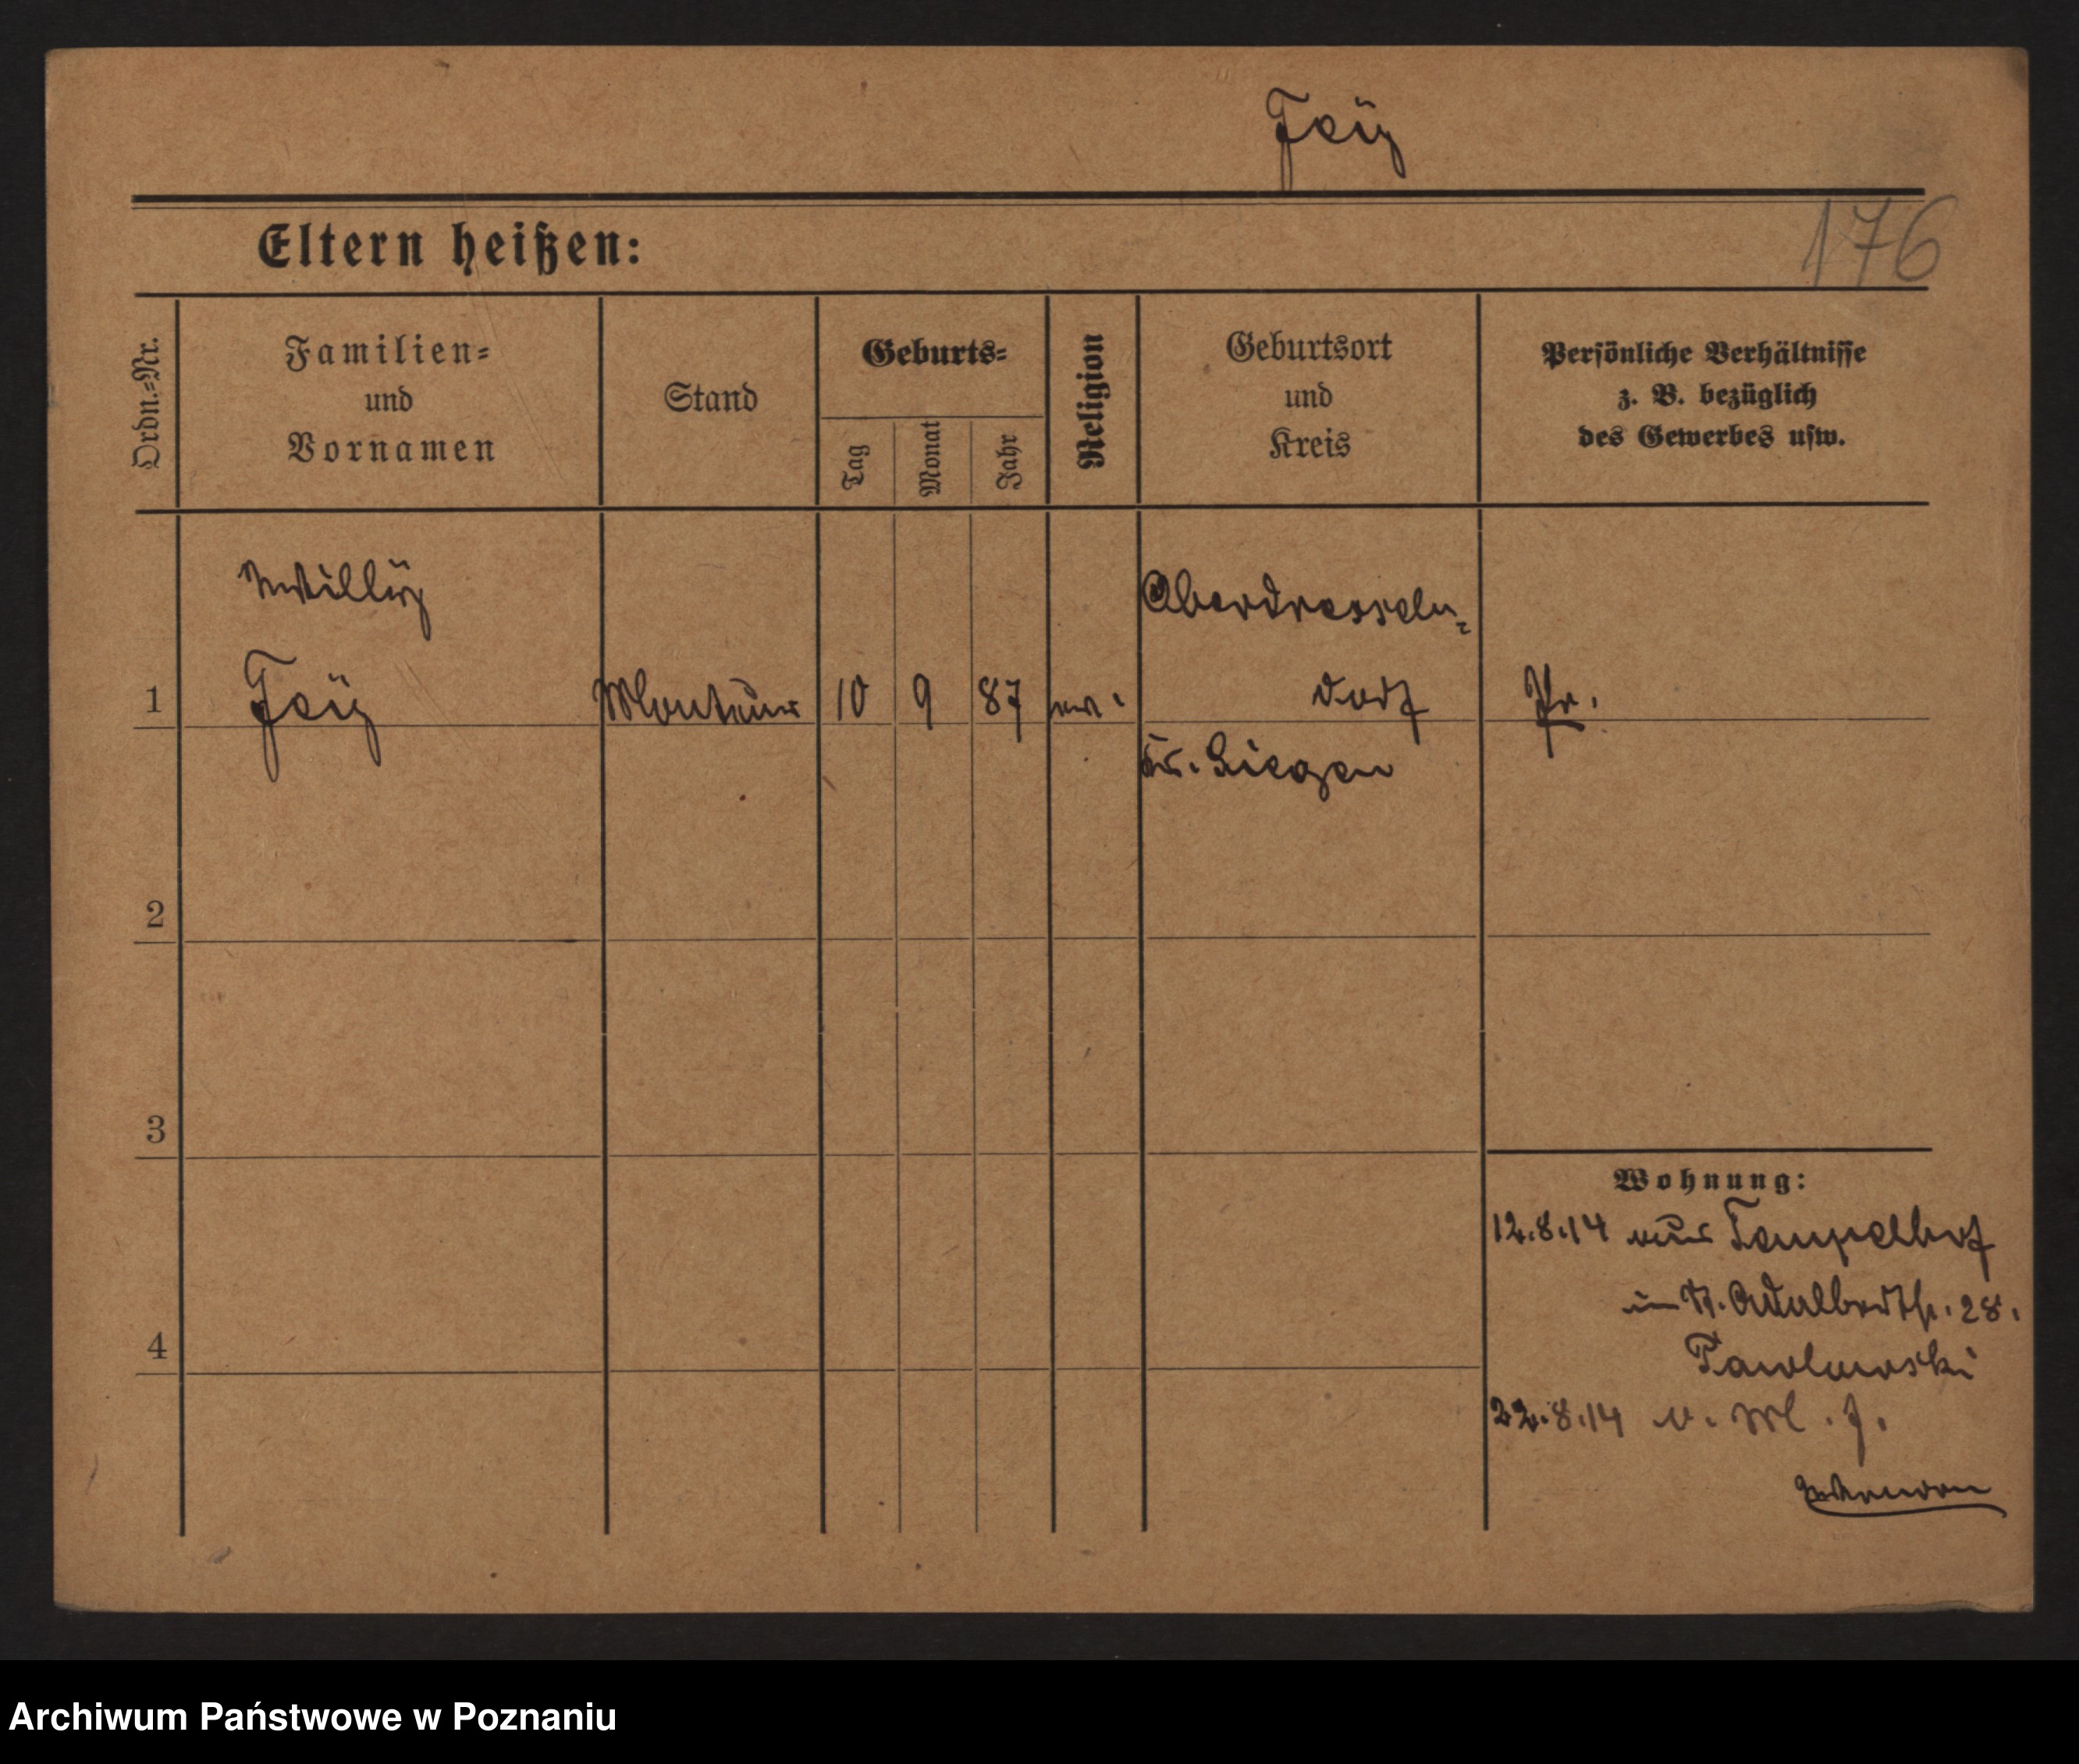 Feiÿ
176
Eltern heißen:
Ordn.-Nr.
Familien-
und
Vornamen
Stand
Geburts-
Tag
Monat
Jahr
Religion
Geburtsort
und
Kreis
Persönliche Verhältnisse
z. B. bezüglich
des Gewerbes usw.
Willÿ
Oberdresseln-
1
Monteur
10
9
87
ev.
dorf
Pr.
Kr. Siegen
2
3
4
Wohnung:
12.8.14 aus Tempelhof
in St. Adalbertstr. 28.
Pawlowski
22.8.14 n. M. F.
Archiwum Państwowe w Poznaniu